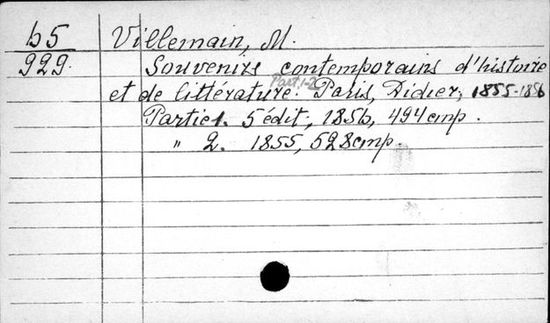 b5
929.
Villemain, M.
Souvenirs contemporains d'histoire
et de littérature. Part.1-2 Paris, Didier, 1855-1856
Partie 1. 5 édit, 1856, 494 cmp.
" 2. 1855, 528 cmp.